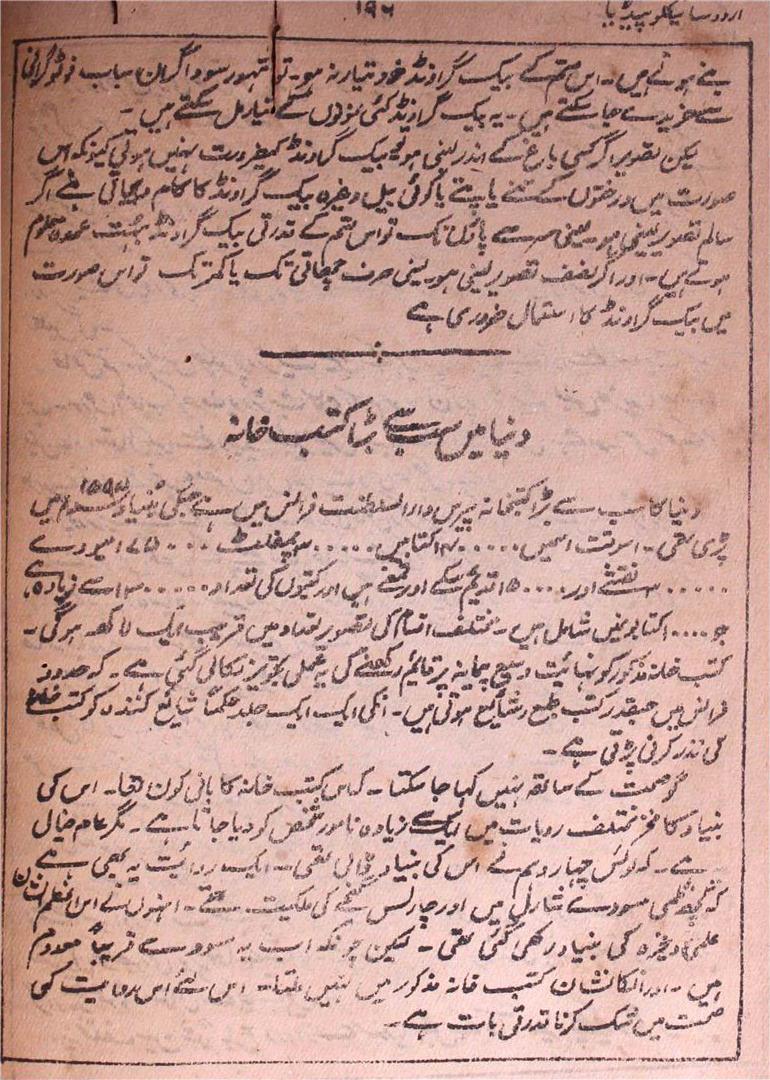 اردو سائیکلو پیڈیا
۱۹۶
بنے ہوئے ہیں۔ اس قسم کے بیک گراونڈ خود تیار نہ ہو۔ تو مشہور سوداگران اسباب فوٹوگرافی
سے خریدے جا سکتے ہیں۔ یہ بیک گراونڈ کئی نمونوں کے تیار مل سکتے ہیں۔
لیکن تصویر اگر کسی باغ کے اندر لینی ہو تو بیک گراونڈ کی ضرورت نہیں ہوتی کیونکہ اس
صورت میں درختوں کے تنے یا پتے یا کوئی بیل وغیرہ بیک گراونڈ کا کام دیجاتی ہے اگر
سالم تصویر لینی ہو۔ یعنی سر سے پاؤں تک تو اس قسم کے قدرتی بیک گراونڈ بہت عمدہ معلوم
ہوتے ہیں۔ اور اگر نصف تصویر لینی ہو یعنی صرف چھاتی تک یا کمر تک تو اس صورت
میں بیک گراونڈ کا استعمال ضروری ہے
دنیا میں سب سے بڑا کتب خانہ
دنیا کا سب سے بڑا کتبخانہ پیرس دارالسلطنت فرانس میں ہے جسکی بنیاد ۱۵۹۵ء میں
پڑی تھی۔ اسوقت اسمیں کتابیں پمفلٹ ۱۷۵۰۰۰ مسودے
نقشے اور ۱۵۰۰۰۰ قدیم سکے اور تمغے ہیں اور کتبوں کی تعداد سے زیادہ ہے
جو ۱۰۰۰۰ کتابونمیں شامل ہیں۔ مختلف اقسام کی تصویریں تعداد میں قریب ایک لاکھ ہونگی۔
کتب خانہ مذکور کو نہائیت وسیع پیمانہ پر قائیم رکھنے کی یہ عملی تجویز نکالی گئی ہے۔ کہ حدود
فرانس میں جسقدر کتب طبع و شائیع ہوتی ہیں۔ انکی ایک ایک جلد حکماً شایع کنندہ کو کتب خانہ
کی نذر کرنی پڑتی ہے۔
گو صحت کے ساتھ نہیں کہا جا سکتا۔ کہ اس کتب خانہ کا بانی کون تھا۔ اس کی
بنیاد کا فخر مختلف روایات میں ایک سے زیادہ نامور شخص کو دیا جاتا ہے۔ مگر عام خیال
ہے۔ کہ لوئس چہار دہم نے اس کی بنیاد ڈالی تھی۔ ایک روائیت یہ بھی ہے
کہ قلمی مسودے شارل میں اور چارلس گنجے کی ملکیت تھے۔ انہوں نے اس عظیم الشان
علمی ذخیرہ کی بنیاد رکھی گئی تھی۔ لیکن چونکہ اب یہ مسودے قریباً معدوم
ہیں۔ اور انکا نشان کتب خانہ مذکور میں نہیں ملتا۔ اس لئے اس روایت کی
صحت میں شک کرنا قدرتی بات ہے۔